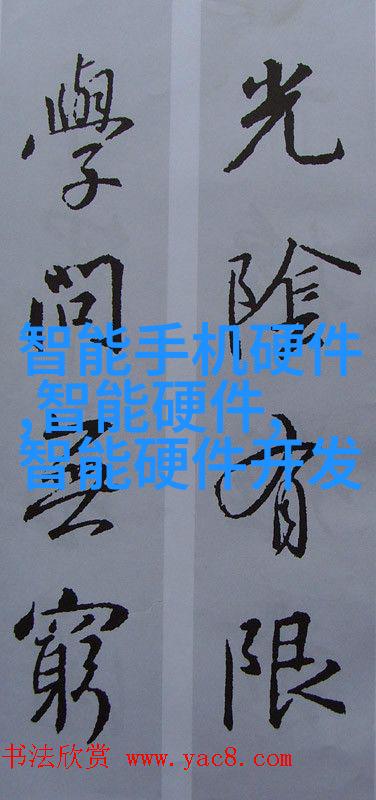 光陰有限
學問無窮
智能手机硬件
,智能硬件,
智能硬件开发
书法欣赏 www.yac8.com